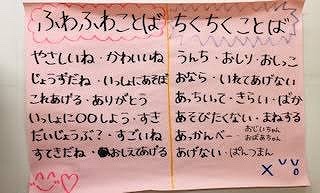 ふわふわことば
やさしいね・かわいいね
じょうずだね・いっしょにあそぼ
これあげる・ありがとう
いっしょに〇〇しよう・すき
だいじょうぶ？・すごいね
すてきだね・おしえてあげる
ちくちくことば
うんち・おしり・おしっこ
おなら・いれてあげない
あっちいって・きらい・ばか
あそびたくない・まねする
あっかんべー・おじいちゃん
おばあちゃん
あげない・ぱんつまん